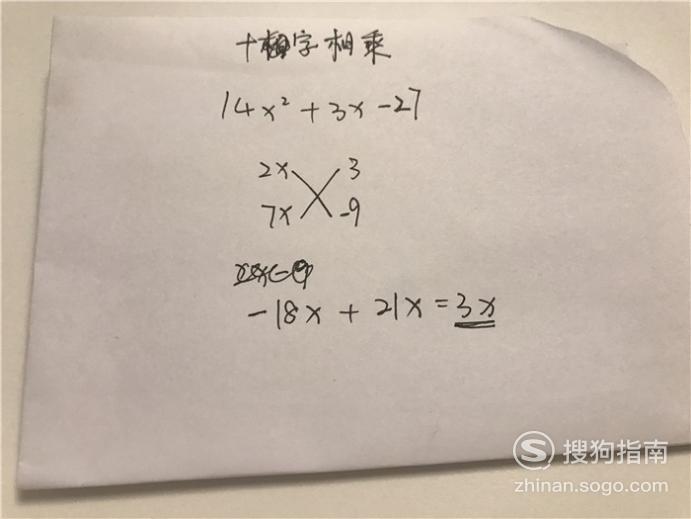 十字相乘
14x² + 3x - 27
2x 3
7x -9
-18x + 21x = 3x
搜狗指南
zhinan.sogo.com